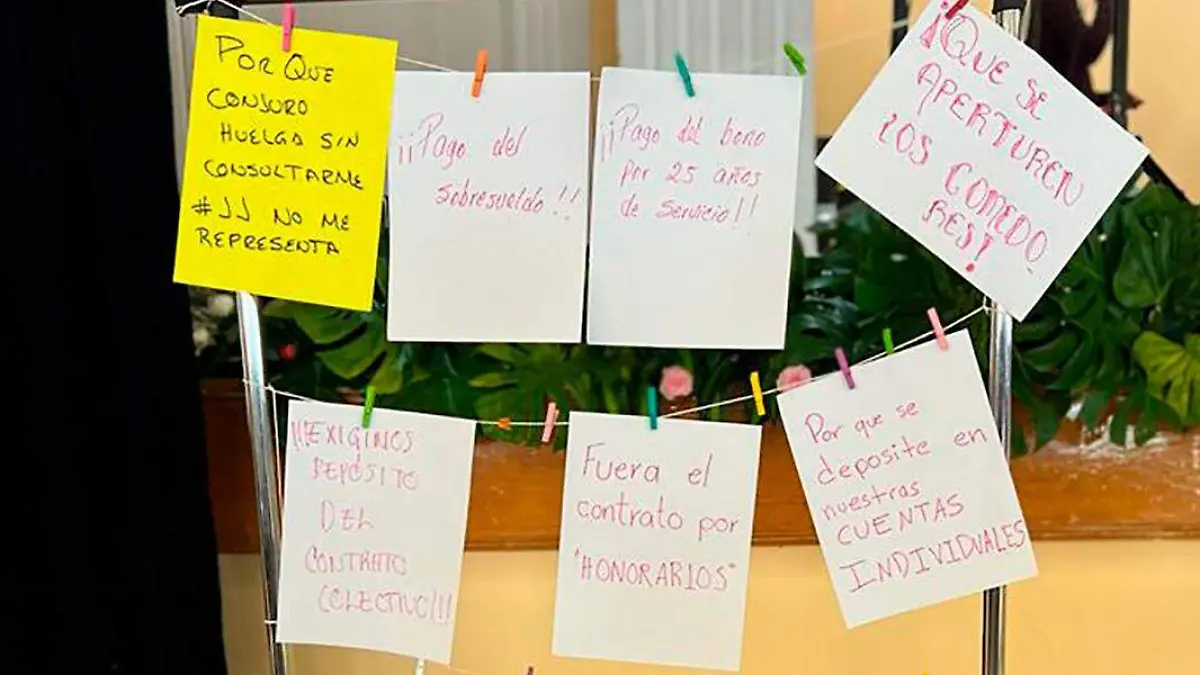 POR QUE
CONJURO
HUELGA SIN
CONSULTARME
#JJ NO ME
REPRESENTA
¡¡Pago del
sobresueldo!!
¡¡Pago del bono
por 25 años
de Servicio!!
¡QUE SE
APERTUREN
LOS COMEDO
RES!
!!EXIGINOS
DEPÓSITO
DEL
CONTRATO
COLECTIVO!!!
Fuera el
contrato por
"HONORARIOS"
Por que se
deposite en
nuestras
CUENTAS
INDIVIDUALES